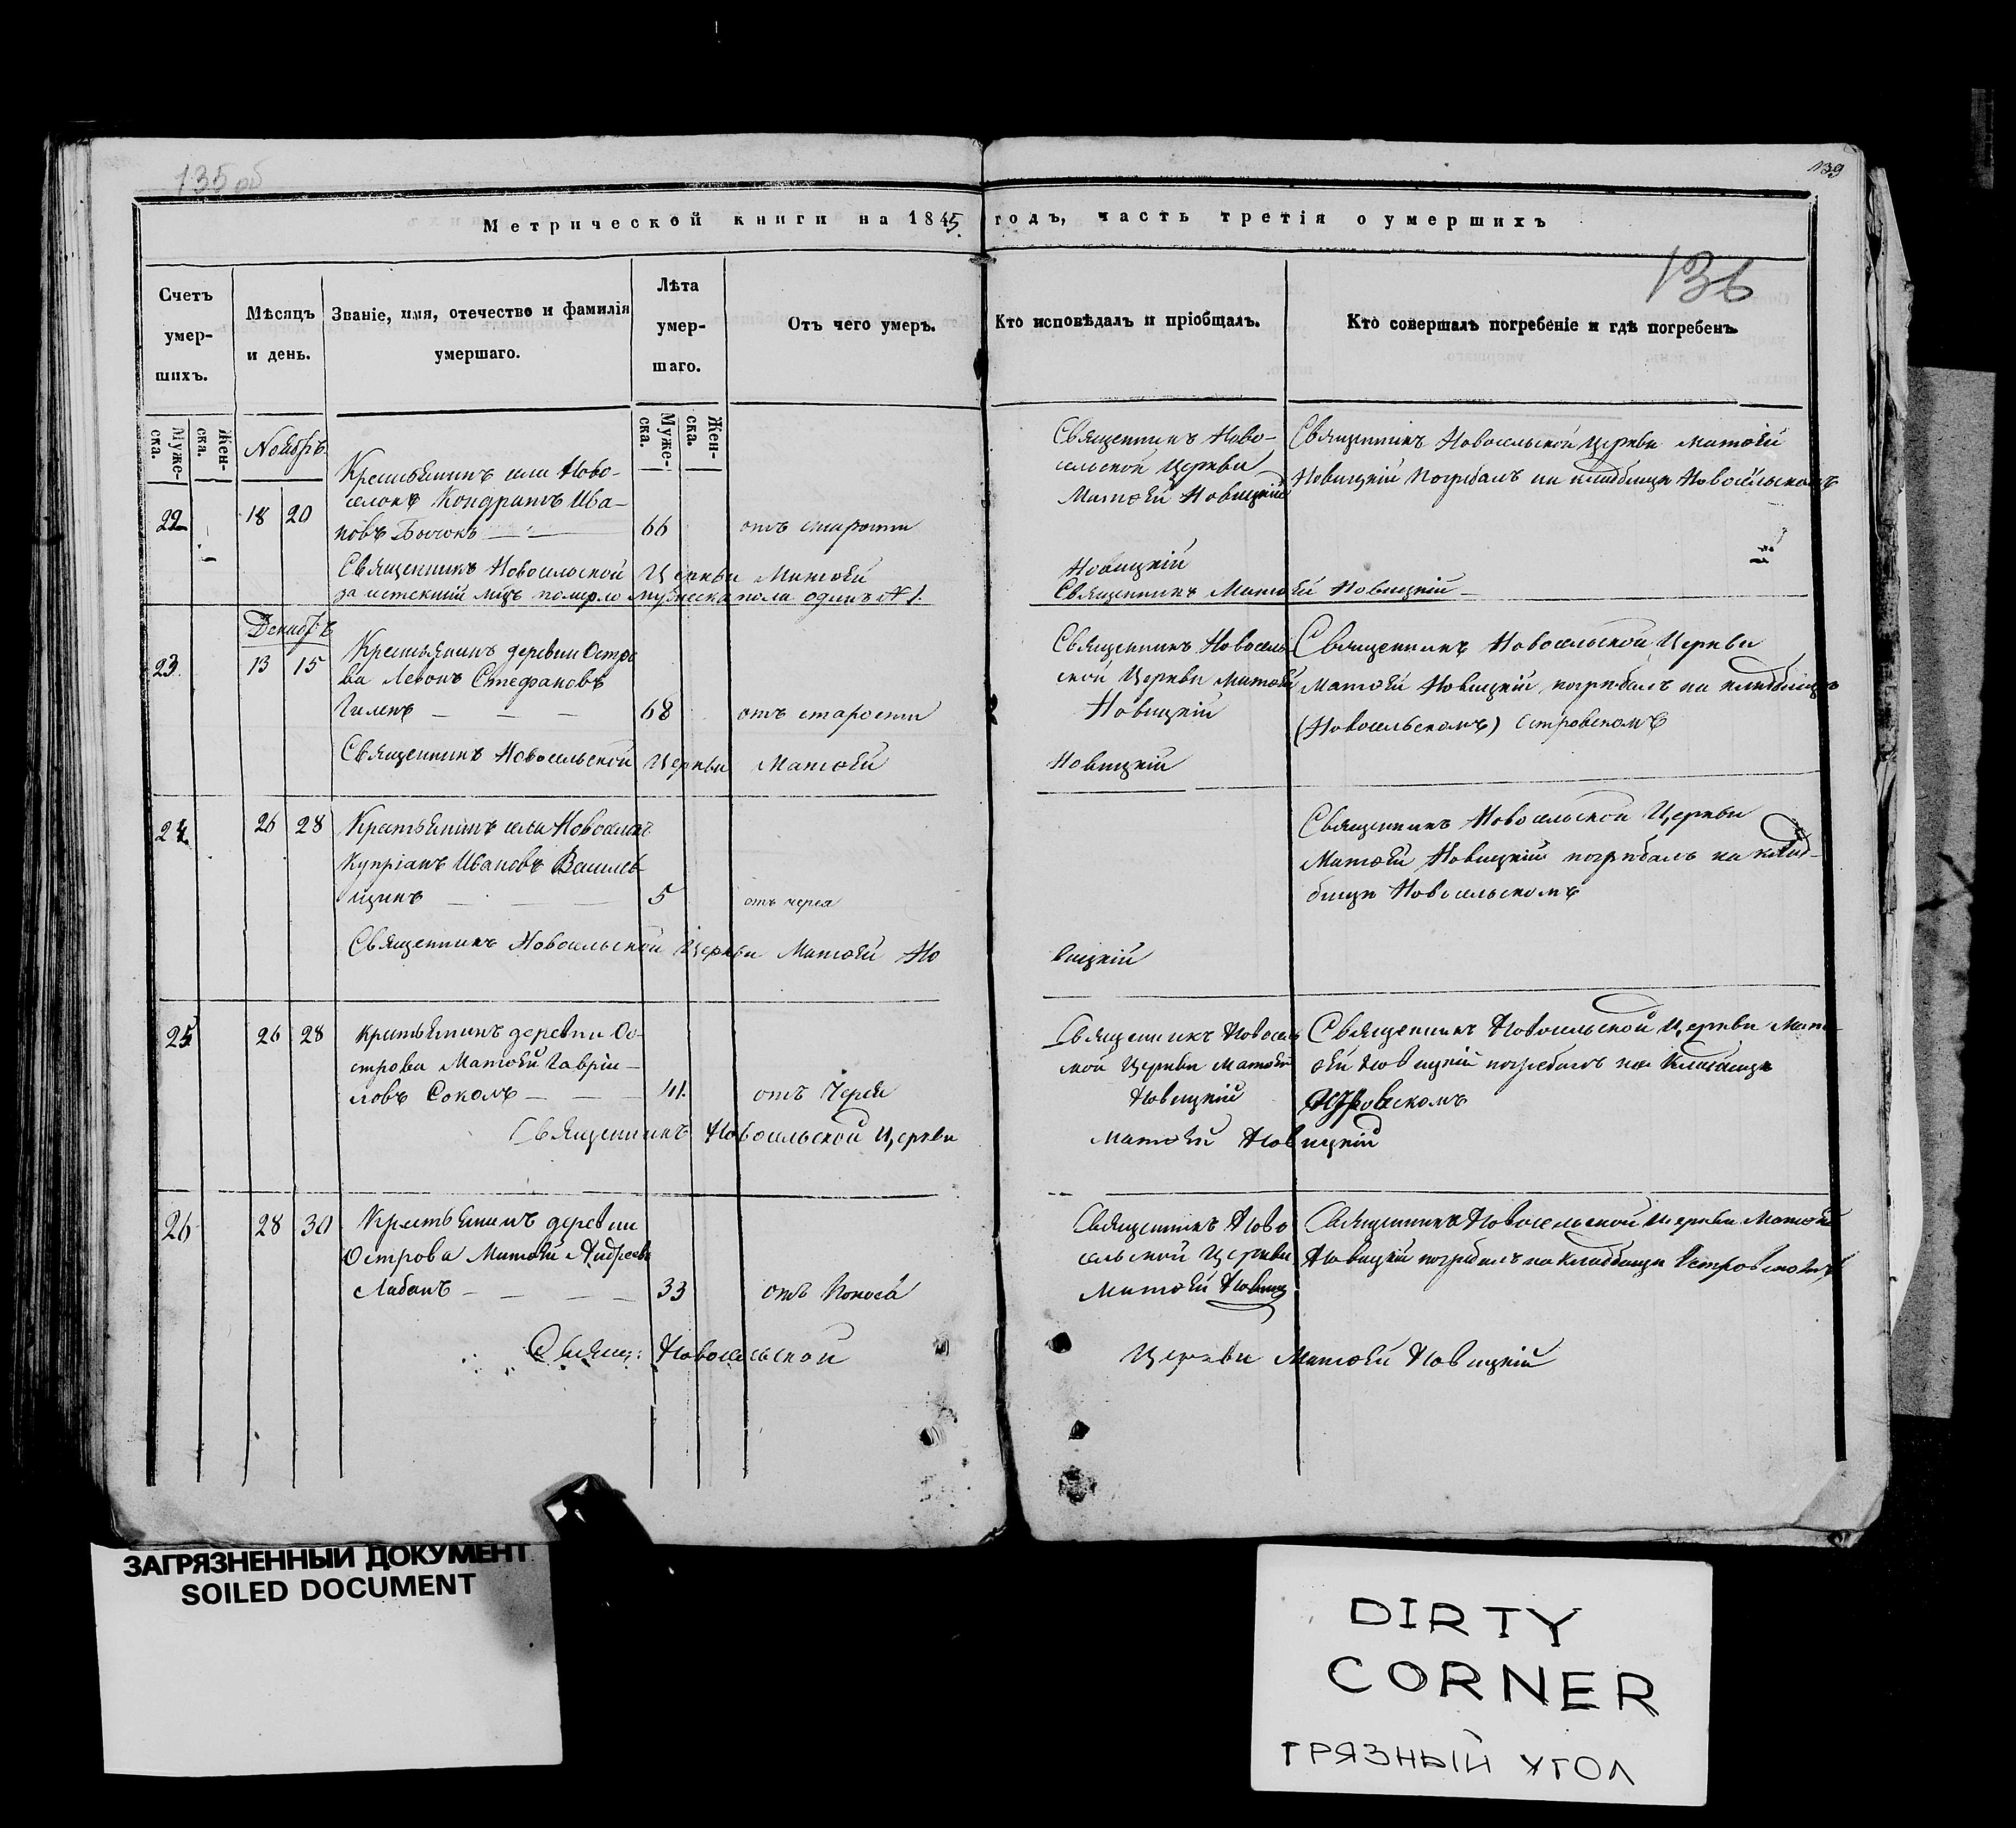 135 об
139
Метрической книги на 1845 годъ, часть третія о умершихъ
136
Счетъ умер-шихъ.
Мѣсяцъ и день.
Званіе, имя, отечество и фамилія умершаго.
Лѣта умер-шаго.
Отъ чего умеръ.
Кто исповѣдалъ и пріобщалъ.
Кто совершалъ погребеніе и гдѣ погребенъ.
Муже-ска.
Жен-ска.
Муже-ска.
Жен-ска.
Ноябрь
22
18 20
Крестьянинъ села Ново-
селокъ Кондратъ Ива-
новъ
66
отъ старости
Священникъ Ново-
сельской Церкви
Матѳей Новицкій
Священникъ Новосельской Церкви Матѳей
Новицкій Погребалъ на кладбищѣ Новосельскомъ
Священникъ Новосельской Церкви Матѳей Новицкій
за истекшій мцъ померло мужеска пола одинъ №1.
Священникъ Матѳей Новицкій
Декабрь
23
13 15
Крестьянинъ деревни Остро
ва Левонъ Стефановъ
68
отъ старости
Священникъ Новосель
ской Церкви Матѳей
Новицкій
Священникъ Новосельской Церкви
Матѳей Новицкій погребалъ на кладбищѣ
(Новосельскомъ) Островскомъ
Священникъ Новосельской Церкви Матѳей Новицкій
24
26 28
Крестьянинъ села Новоселокъ
Купріанъ Ивановъ Василев
5
Священникъ Новосельской Церкви
Матѳей Новицкій погребалъ на клад-
бищѣ Новосельскомъ
Священникъ Новосельской Церкви Матѳей Но
вицкій
25
26 28
крестьянинъ деревни Ос-
трова Матѳей Гаврiи-
ловъ Соколъ
41.
отъ
Священникъ Новосель
ской Церкви Матѳей
Новицкій
Священникъ Новосельской Церкви Мат-
ѳей Новицкій погребалъ на Кладбищѣ
Островскомъ
Священникъ Новосельской Церкви
Матѳей Новицкій
26
28 30
Крестьянинъ деревни
Острова Матѳей Андреевъ
Лабанъ
33
отъ Поноса
Священникъ Ново
сельской Церкви
Матѳей Новиц
Священникъ Новосельской Церкви Матѳей
Новицкій погребалъ на Кладбищѣ Островскомъ
Свящ: Новосельской
Церкви Матѳей Новицкій
ЗАГРЯЗНЕННЫЙ ДОКУМЕНТ
SOILED DOCUMENT
DIRTY
CORNER
ГРЯЗНЫЙ УГОЛ